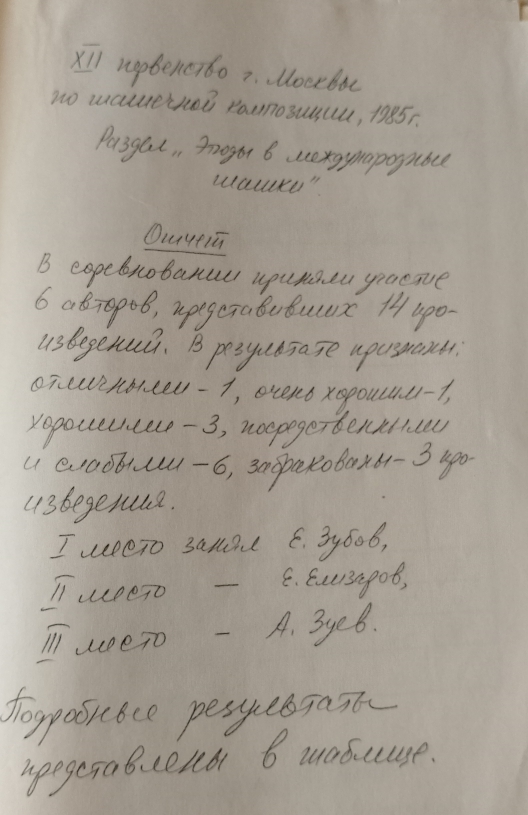 XII первенство г. Москвы
по шашечной композиции, 1985г.
Раздел „Этюды в международные
шашки".
Отчет
В соревновании приняли участие
6 авторов, представивших 14 про-
изведений. В результате признаны:
отличными - 1, очень хорошим - 1,
хорошими - 3, посредственными
и слабыми - 6, забракованы - 3 про-
изведения.
I место занял Е. Зубов,
II место — Е. Елизаров,
III место - А. Зуев.
Подробные результаты
представлены в таблице.